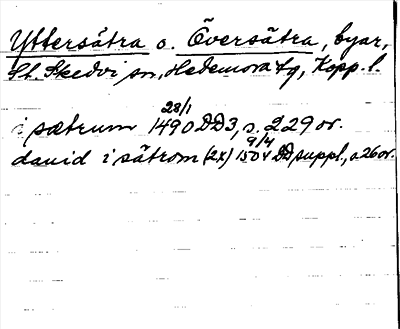 Yttersätra o. Översätra, byar,
St. Skedvi sn, Hedemora tg, Kopp. l.
28/1
i sætrum 1490 DD3, s. 229 or.
9/4
dauid i sätrom (2x) 1504 DD suppl., s. 26 or.